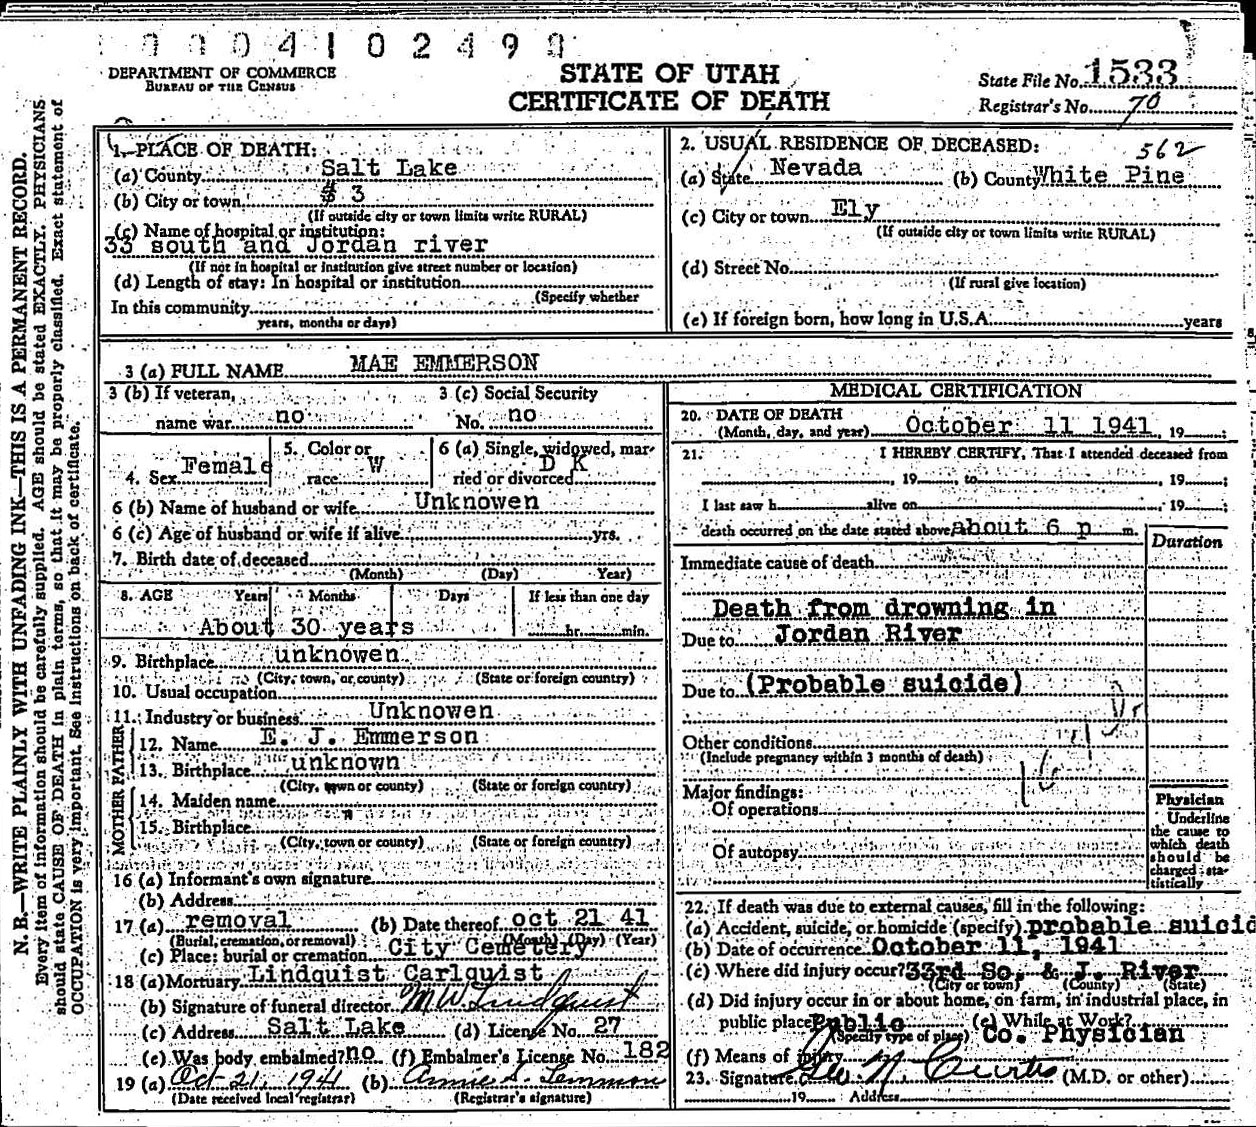 0004102490
DEPARTMENT OF COMMERCE
BUREAU OF THE CENSUS
STATE OF UTAH
CERTIFICATE OF DEATH
State File No. 1533
Registrar's No. 70
N. B.—WRITE PLAINLY WITH UNFADING INK—THIS IS A PERMANENT RECORD.
Every item of information should be carefully supplied. AGE should be stated EXACTLY. PHYSICIANS
should state CAUSE OF DEATH in plain terms, so that it may be properly classified. Exact statement of
OCCUPATION is very important. See instructions on back of certificate.
1. PLACE OF DEATH:
(a) County Salt Lake
(b) City or town # 3
(If outside city or town limits write RURAL)
(c) Name of hospital or institution:
33 south and Jordan river
(If not in hospital or institution give street number or location)
(d) Length of stay: In hospital or institution
(Specify whether
In this community
years, months or days)
2. USUAL RESIDENCE OF DECEASED:
562
(a) State Nevada (b) County White Pine
(c) City or town Ely
(If outside city or town limits write RURAL)
(d) Street No.
(If rural give location)
(e) If foreign born, how long in U.S.A. years
3 (a) FULL NAME MAE EMMERSON
3 (b) If veteran,
name war no
3 (c) Social Security
No. no
4. Sex Female
5. Color or
race W
6 (a) Single, widowed, mar-
ried or divorced D K
6 (b) Name of husband or wife Unknowen
6 (c) Age of husband or wife if alive yrs.
7. Birth date of deceased
(Month) (Day) Year)
8. AGE Years Months Days If less than one day
About 30 years hr. min.
9. Birthplace unknowen
(City, town, or county) (State or foreign country)
10. Usual occupation
11. Industry or business Unknowen
FATHER
12. Name E. J. Emmerson
13. Birthplace unknown
(City, town or county) (State or foreign country)
MOTHER
14. Maiden name
"
15. Birthplace
(City, town or county) (State or foreign country)
16 (a) Informant's own signature
(b) Address
17 (a) removal (b) Date thereof oct 21 41
(Burial, cremation, or removal) (Month) (Day) (Year)
(c) Place: burial or cremation City Cemetery
18 (a) Mortuary Lindquist Carlquist
(b) Signature of funeral director M W Lindquist
(c) Address Salt Lake (d) License No. 27
(e) Was body embalmed? no (f) Embalmer's License No. 182
19 (a) Oct-21, 1941 (b) Annie S. Lemmon
(Date received local registrar) (Registrar's signature)
MEDICAL CERTIFICATION
20. DATE OF DEATH
(Month, day, and year) October 11 1941, 19 ;
21. I HEREBY CERTIFY, That I attended deceased from
, 19 , to , 19 ;
I last saw h alive on , 19 ;
death occurred on the date stated above, about 6 p m.
Duration
Immediate cause of death
Death from drowning in
Due to Jordan River
Due to (Probable suicide)
Other conditions
(Include pregnancy within 3 months of death)
Major findings:
Of operations
Of autopsy
Physician
Underline
the cause to
which death
should be
charged sta-
tistically
22. If death was due to external causes, fill in the following:
(a) Accident, suicide, or homicide (specify) probable suicid
(b) Date of occurrence October 11, 1941
(c) Where did injury occur? 33rd So. & J. River
(City or town) (County) (State)
(d) Did injury occur in or about home, on farm, in industrial place, in
public place? Public (e) While at Work?
(Specify type of place) Co. Physician
(f) Means of injury
23. Signature Geo N. Curtis (M.D. or other)
19 Address